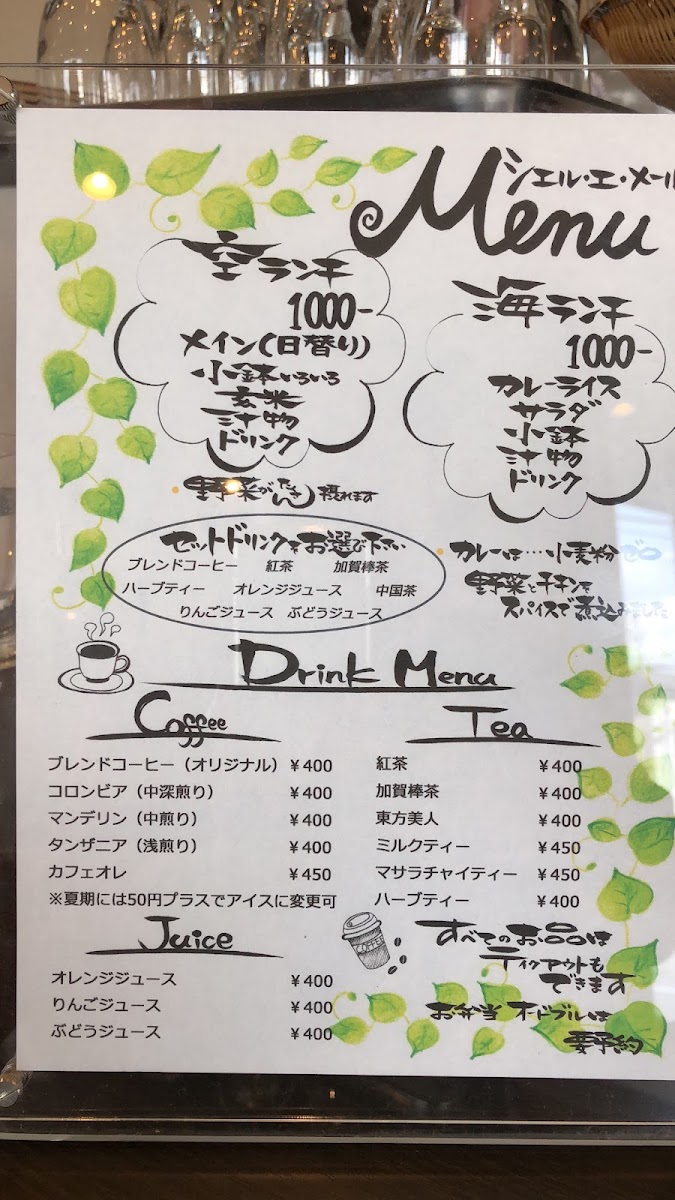 シエル・エ・メール
Menu
空ランチ
1000-
メイン(日替り)
小鉢いろいろ
玄米
汁物
ドリンク
・野菜がたくさん摂れます
海ランチ
1000-
カレーライス
サラダ
小鉢
汁物
ドリンク
・カレーは…小麦粉ゼロ
野菜とチキンを
スパイスで煮込みました
セットドリンクをお選び下さい
ブレンドコーヒー 紅茶 加賀棒茶
ハーブティー オレンジジュース 中国茶
りんごジュース ぶどうジュース
Drink Menu
Coffee
ブレンドコーヒー（オリジナル）￥400
コロンビア（中深煎り） ￥400
マンデリン（中煎り） ￥400
タンザニア（浅煎り） ￥400
カフェオレ ￥450
※夏期には50円プラスでアイスに変更可
Tea
紅茶 ￥400
加賀棒茶 ￥400
東方美人 ￥400
ミルクティー ￥450
マサラチャイティー ￥450
ハーブティー ￥400
Juice
オレンジジュース ￥400
りんごジュース ￥400
ぶどうジュース ￥400
COFFEE
すべてのお品は
テイクアウトも
できます
お弁当 オードブルは
要予約